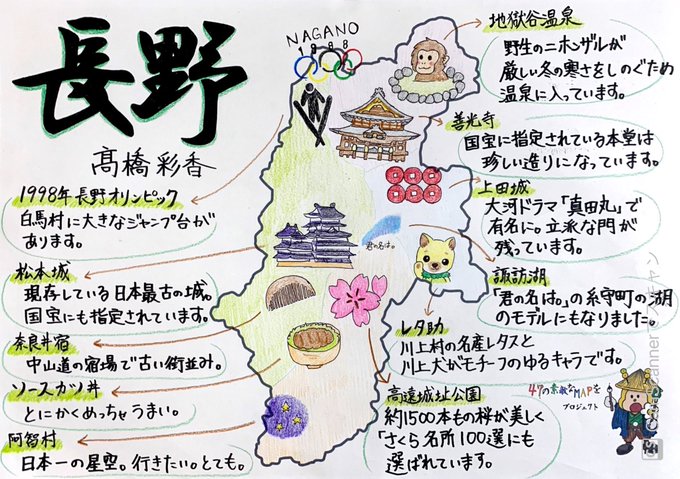 長野
髙橋彩香
NAGANO
1988
地獄谷温泉
野生のニホンザルが
厳しい冬の寒さをしのぐため
温泉に入っています。
善光寺
国宝に指定されている本堂は
珍しい造りになっています。
上田城
大河ドラマ「真田丸」で
有名に。立派な門が
残っています。
諏訪湖
「君の名は。」の糸守町の湖
のモデルにもなりました。
君の名は。
レタ助
川上村の名産レタスと
川上犬がモチーフのゆるキャラです。
高遠城址公園
約1500本もの桜が美しく
「さくら名所100選にも
選ばれています。
1998年長野オリンピック
白馬村に大きなジャンプ台が
あります。
松本城
現存している日本最古の城。
国宝にも指定されています。
奈良井宿
中山道の宿場で古い街並み。
ソースカツ丼
とにかくめっちゃうまい。
阿智村
日本一の星空。行きたい。とても。
47の素敵なMAPを
プロジェクト